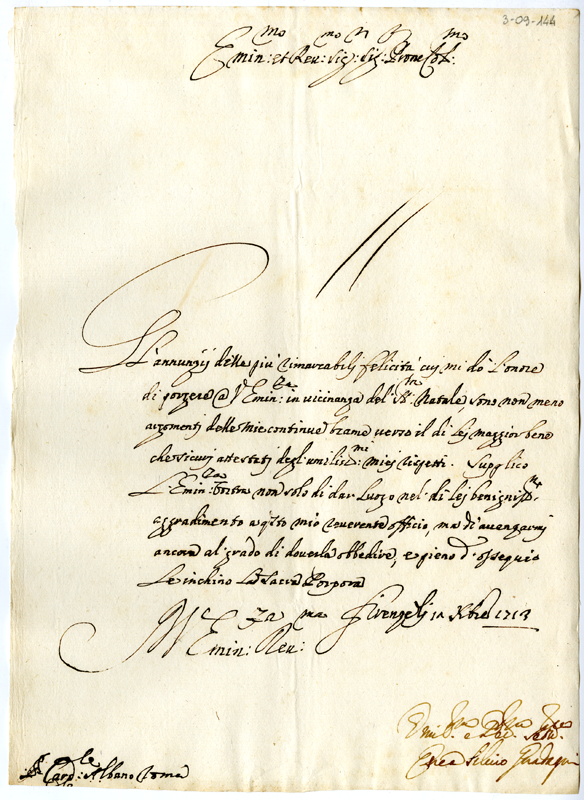 3-09-144
Emin:mo et Reu:mo Sig:r Sig: Prone Col:mo
L'annunzij delle più rimarcabilj felicità cuj mi dò l'onore
di porgere @ V Emin:za in vicinanza del S:mo Natale sono non meno
argomentj delle mie continue brame verso il di lej maggior bene
che sicurj attestatj degl'umiliss:mi miej rispetti. Supplico
L'Emin:za Vostra non solo di dar luogo nel di lej benigniss:mo
aggradimento a q'sto mio reverente officio, ma d'avanzarmj
ancora al grado di doverla obbedire, e pieno d'ossequio
Le inchino La Sacra Porpora
Emin:za Reu:ma Firenze lj 12 Xbre 1713
S:r Card:le Albano Roma
Enea Silvio